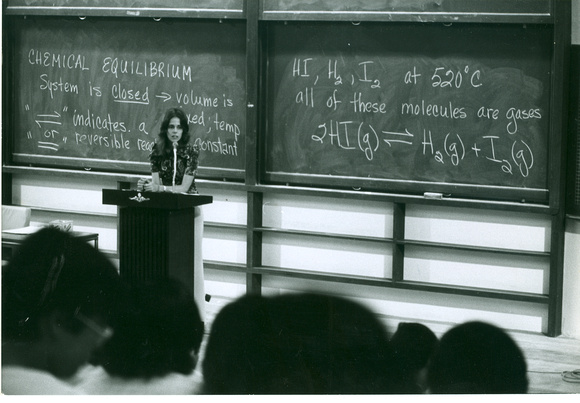 CHEMICAL EQUILIBRIUM
System is closed → volume is
"⇌" indicates. a temp
or "=" reversible constant
HI, H₂, I₂ at 520°C
all of these molecules are gases
2HI(g) ⇌ H₂(g) + I₂(g)